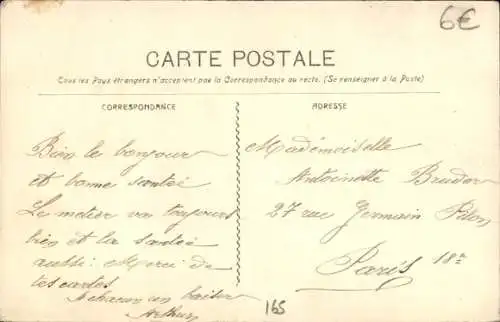 6€
CARTE POSTALE
Tous les Pays étrangers n'acceptent pas la Correspondance au recto. (Se renseigner à la Poste)
CORRESPONDANCE
Bien le bonjour
et bonne santé
Le metier va toujours
bien et la santé
aussi. Merci de
tes cartes
A chacun un baiser
Arthur
ADRESSE
Mademoiselle
Antoinette
27 rue Germain Pilon
Paris 18e
165